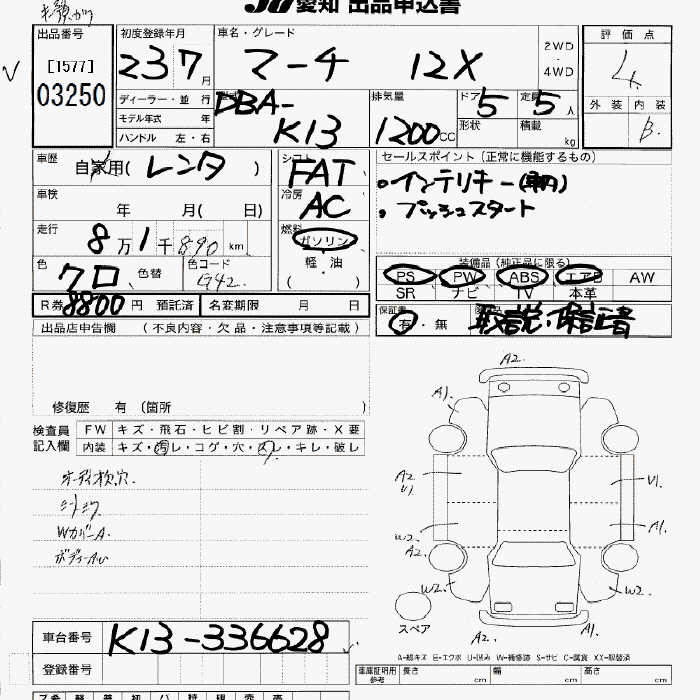 愛知 出品申込書
出品番号 初度登録年月 車名・グレード 評価点
[1577] 23 7月 マーチ 12X 2WD・4WD 4
03250
ディーラー・並行 型式 DBA- 排気量 ドア 5 定員 5人 外装 内装
モデル年式 年 K13 1200CC 形状 積載 kg B
ハンドル 左・右
車歴 自家用(レンタ) シフト FAT セールスポイント(正常に機能するもの)
車検 年 月( 日) 冷房 AC ・インテリキー
・プッシュスタート
走行 8万1千890km 燃料 ガソリン
軽・油
( )
色 クロ 色替 色コード G42
装備品(純正品に限る)
PS PW ABS エアB AW
SR ナビ TV 本革
R券 8800円 預託済 名変期限 月 日
保証書 有・無 取説・保証書
出品店申告欄 (不良内容・欠品・注意事項等記載)
修復歴 有(箇所 )
検査員記入欄 FW キズ・飛石・ヒビ割・リペア跡・X要
内装 キズ・汚レ・コゲ・穴・スレ・キレ・破レ
オーディオ枚穴.
シートシワ
WカバーA.
ボディーAW
A2.
A1.
A2 U1. U1.
W2. A2. A1.
W2 W2.
スペア A2. A1.
車台番号 K13-336628
登録番号
A=線キズ E=エクボ U=凹み W=補修跡 S=サビ C=腐食 XX=取替済
車庫証明用参考 長さ cm 幅 cm 高さ cm